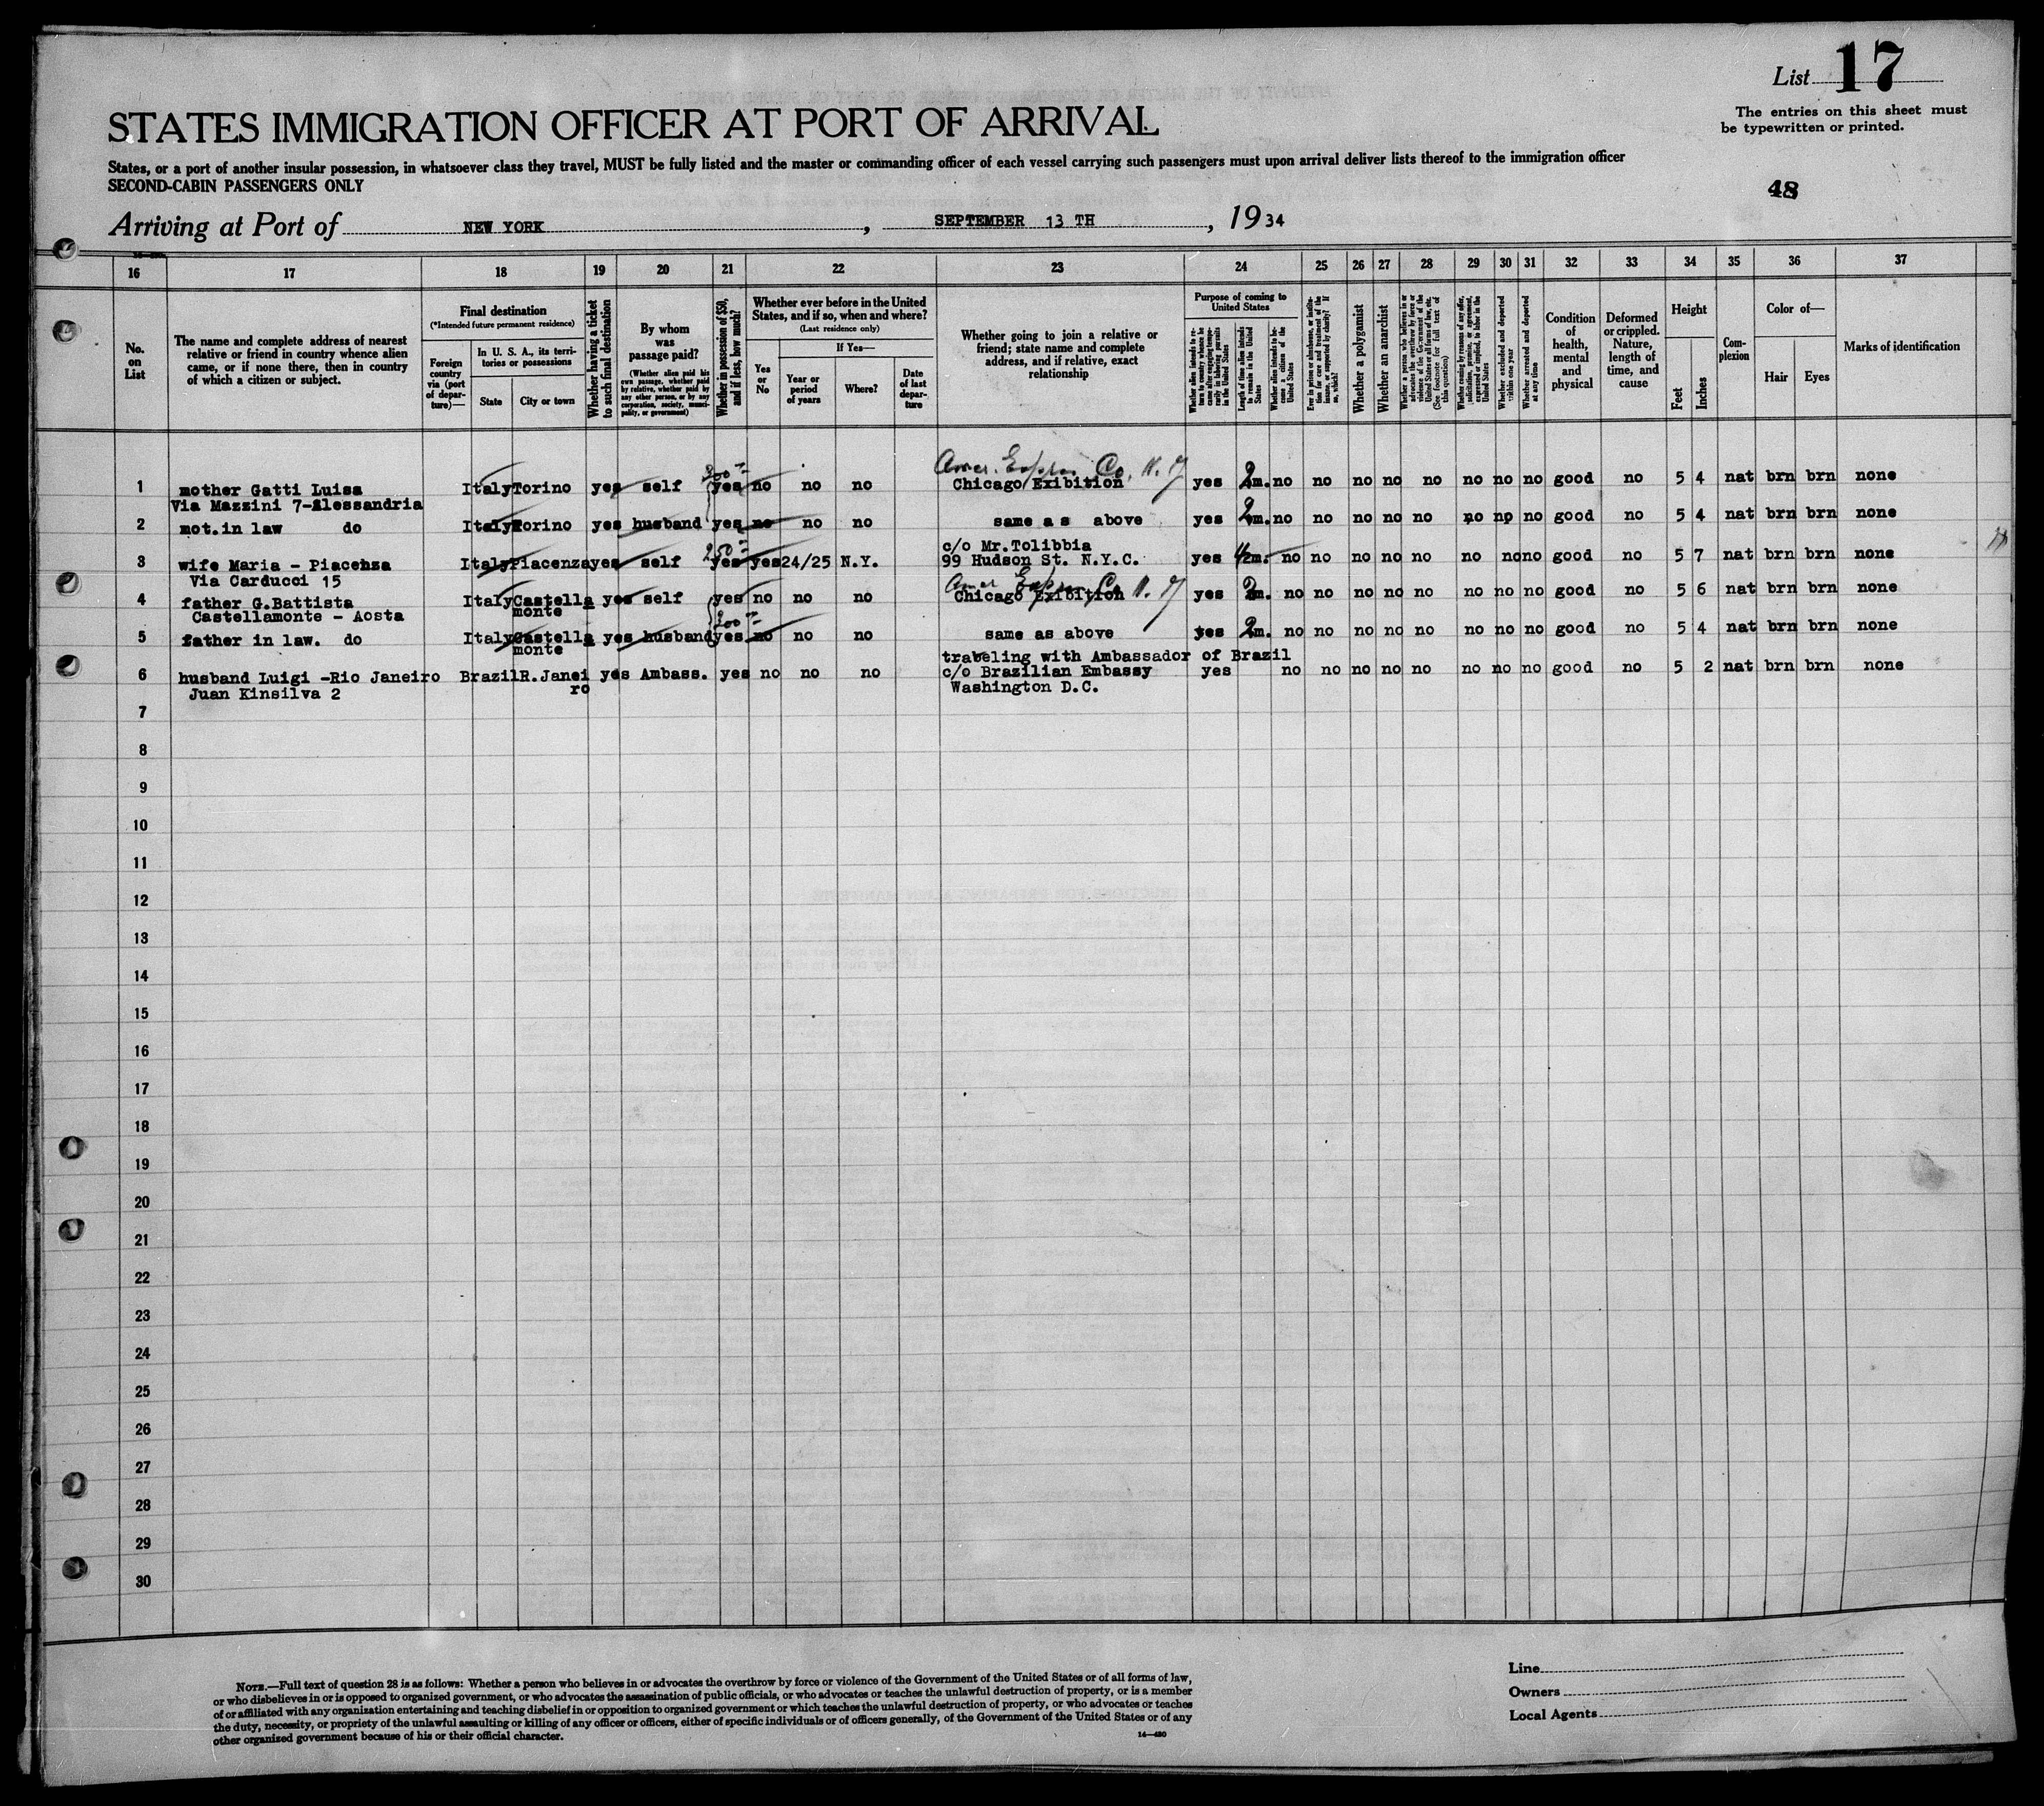 List 17
The entries on this sheet must
be typewritten or printed.
STATES IMMIGRATION OFFICER AT PORT OF ARRIVAL
States, or a port of another insular possession, in whatsoever class they travel, MUST be fully listed and the master or commanding officer of each vessel carrying such passengers must upon arrival deliver lists thereof to the immigration officer
SECOND-CABIN PASSENGERS ONLY
48
Arriving at Port of NEW YORK, SEPTEMBER 13 TH, 1934
16 17 18 19 20 21 22 23 24 25 26 27 28 29 30 31 32 33 34 35 36 37
No. on List
The name and complete address of nearest
relative or friend in country whence alien
came, or if none there, then in country
of which a citizen or subject.
Final destination
(*Intended future permanent residence)
Foreign country via (port of departure)—
In U. S. A., its territories or possessions
State
City or town
Whether having a ticket to such final destination
By whom was passage paid?
(Whether alien paid his own passage, whether paid by relative, whether paid by any other person, or by any corporation, society, municipality, or government)
Whether in possession of $50, and if less, how much?
Whether ever before in the United States, and if so, when and where?
(Last residence only)
Yes or No
If Yes—
Year or period of years
Where?
Date of last departure
Whether going to join a relative or
friend; state name and complete
address, and if relative, exact
relationship
Purpose of coming to United States
Whether alien intends to return to country whence he came after engaging temporarily in laboring pursuits in the United States
Length of time alien intends to remain in the United States
Whether alien intends to become a citizen of the United States
Ever in prison or almshouse, or institution for care and treatment of the insane, or supported by charity? If so, which?
Whether a polygamist
Whether an anarchist
Whether a person who believes in or advocates the overthrow by force or violence of the Government of the United States or all forms of law, etc. (See footnote for full text of this question)
Whether coming by reason of any offer, solicitation, promise, or agreement, expressed or implied, to labor in the United States
Whether excluded and deported within one year
Whether arrested and deported at any time
Condition of health, mental and physical
Deformed or crippled. Nature, length of time, and cause
Height
Feet
Inches
Complexion
Color of—
Hair
Eyes
Marks of identification
Amer. Express Co. N. Y
300
1 mother Gatti Luisa Italy Torino yes self yes no no no Chicago Exibition yes 2m. no no no no no no no no good no 5 4 nat brn brn none
Via Mazzini 7-Alessandria
2 mot.in law do Italy Torino yes husband yes no no no same as above yes 2m. no no no no no no no no good no 5 4 nat brn brn none
250 c/o Mr.Tolibbia
3 wife Maria - Piacenza Italy Piacenza yes self yes yes 24/25 N.Y. 99 Hudson St. N.Y.C. yes 1/2m. no no no no no no no no good no 5 7 nat brn brn none
Via Carducci 15
Amer Express Co N. Y
4 father G.Battista Italy Castella yes self yes no no no Chicago Exibition yes 2m. no no no no no no no no good no 5 6 nat brn brn none
Castellamonte - Aosta monte
5 father in law. do Italy Castella yes husband yes no no no same as above yes 2m. no no no no no no no no good no 5 4 nat brn brn none
monte
trabeling with Ambassador of Brazil
6 husband Luigi -Rio Janeiro Brazil R.Janei yes Ambass. yes no no no c/o Brazilian Embassy yes no no no no no no no no good no 5 2 nat brn brn none
Juan Kinsilva 2 ro Washington D.C.
7
8
9
10
11
12
13
14
15
16
17
18
19
20
21
22
23
24
25
26
27
28
29
30
NOTE.—Full text of question 28 is as follows: Whether a person who believes in or advocates the overthrow by force or violence of the Government of the United States or of all forms of law,
or who disbelieves in or is opposed to organized government, or who advocates the assassination of public officials, or who advocates or teaches the unlawful destruction of property, or is a member
of or affiliated with any organization entertaining and teaching disbelief in or opposition to organized government or which teaches the unlawful destruction of property, or who advocates or teaches
the duty, necessity, or propriety of the unlawful assaulting or killing of any officer or officers, either of specific individuals or of officers generally, of the Government of the United States or of any
other organized government because of his or their official character.
14—430
Line
Owners
Local Agents